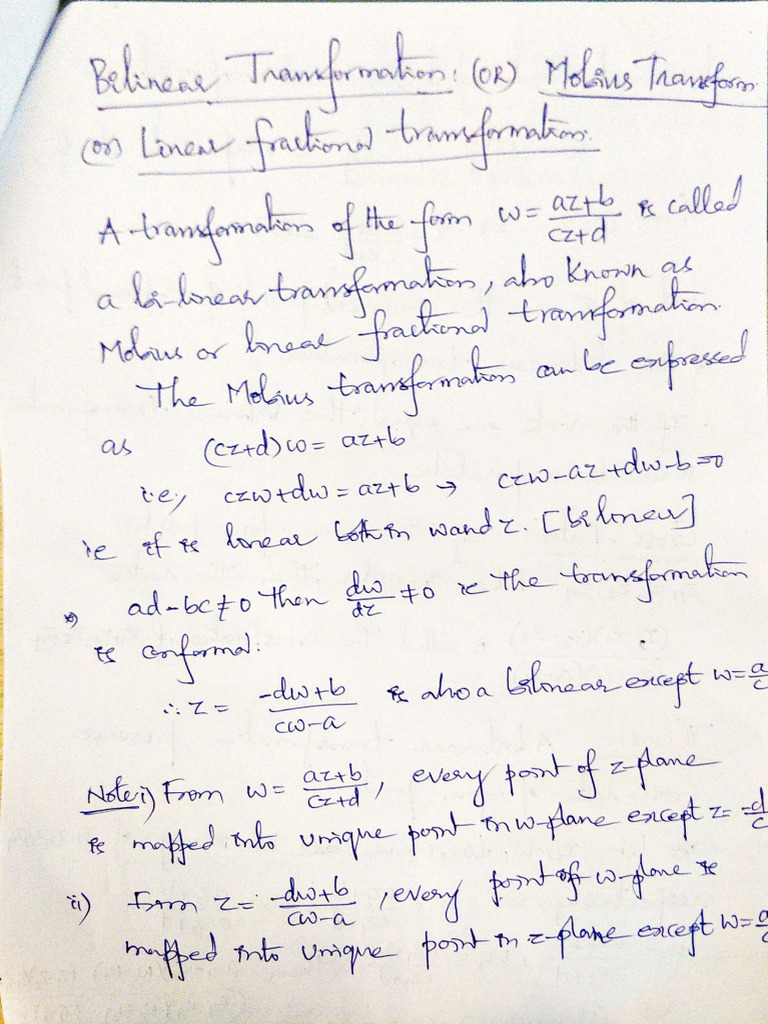 Bilinear Transformation: (OR) Mobius Transform
(or) Linear fractional transformation.
A transformation of the form w = az+b/cz+d is called
a bi-linear transformation, also known as
Mobius or linear fractional transformation.
The Mobius transformation can be expressed
as (cz+d)w = az+b
i.e., czw+dw = az+b → czw-az+dw-b=0
ie it is linear both in w and z. [bilinear]
ad-bc≠0 then dw/dz ≠0 ie the transformation
is conformal.
∴ z = -dw+b/cw-a is also a bilinear except w=a/c
Note: i) From w = az+b/cz+d, every point of z-plane
is mapped into unique point in w-plane except z= -d/c
ii) From z= -dw+b/cw-a, every point of w-plane is
mapped into unique point in z-plane except w=a/c